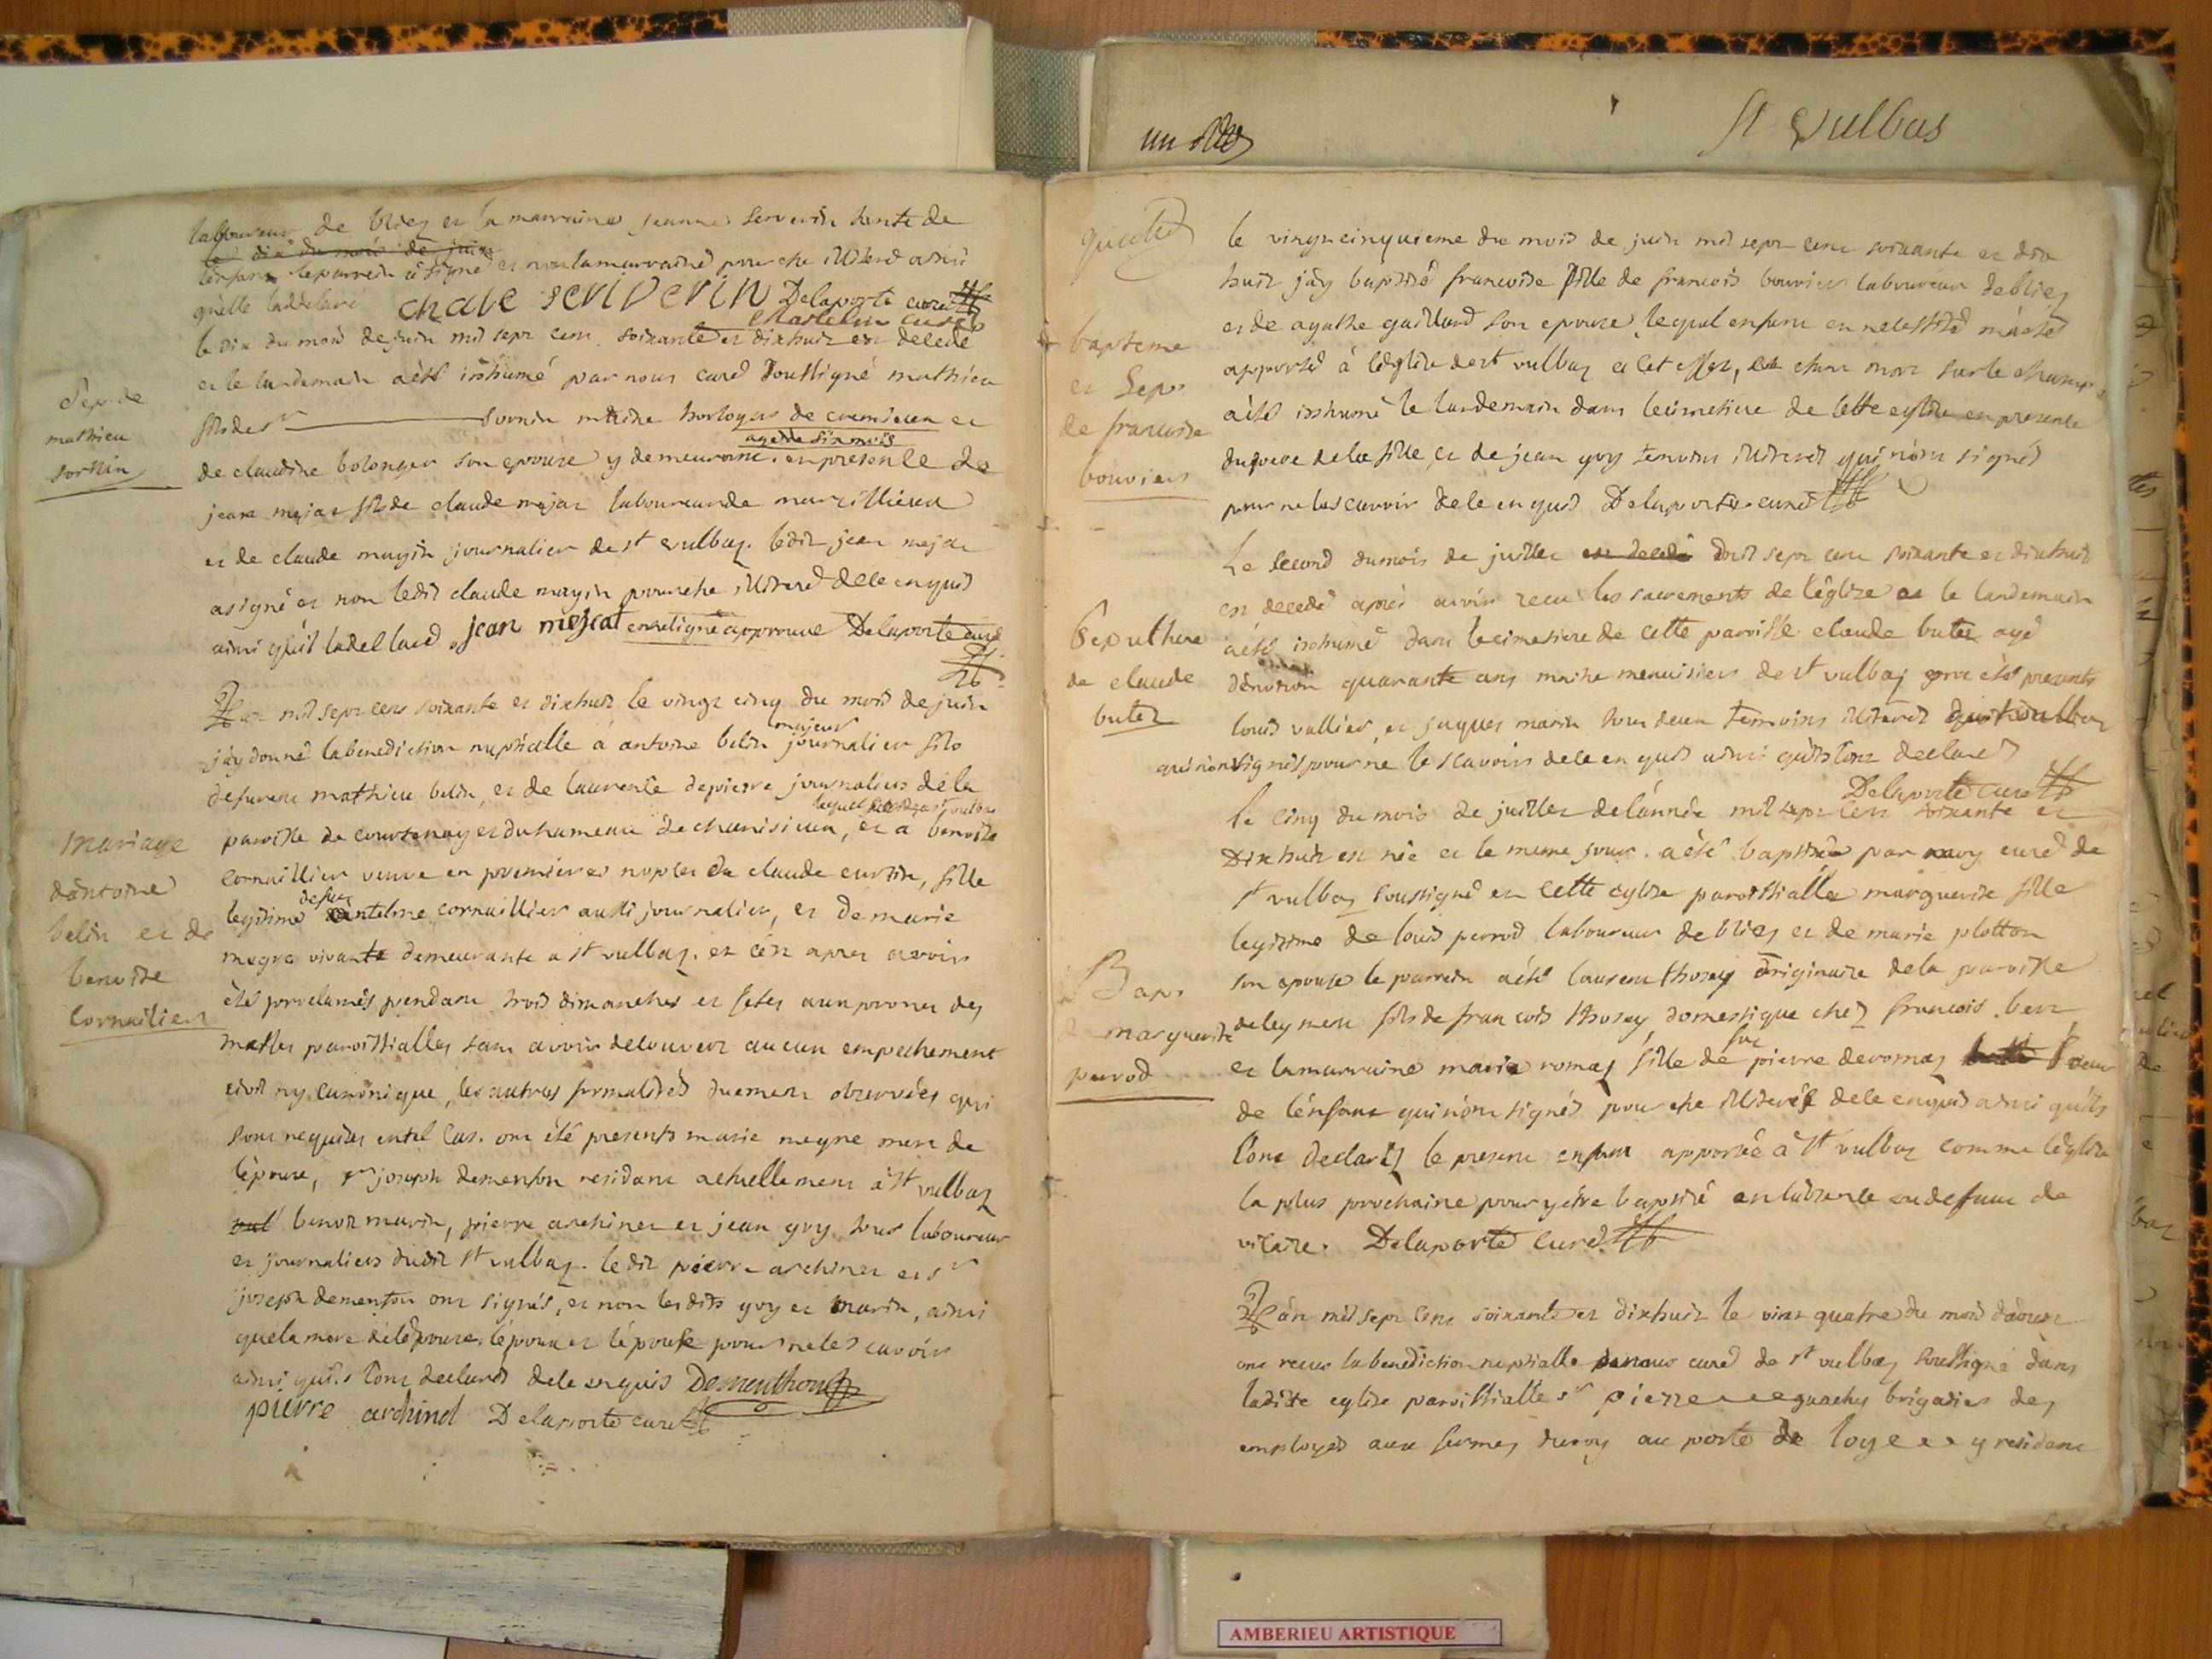 laboureur de bliez et la marraine jeanne serverin tante de
le dix du mois de juin
lenfant le parrein a signé et non la marraine pour etre illiteré ainsi
qu'elle la declaré chale SERVERIN Delaporte curé
le dix du mois de juin mil sept cent soixante et dixhuit est decedé
et le landemain a été inhumé par nous curé soussigné mathieu
fils de sr sornin maitre horloger de cremieu et
agé de six mois
de claudine bolonger son epouse y demeurant. en presence de
jean mejat fils de claude mejat laboureur de marcillieu
et de claude magin journalier de st vulbaz. ledit jean mejat
a signé et non ledit claude magin pour etre illiteré de ce enquis
ainsi qu'il la declaré jean mejcat Delaporte curé
Sep. de
mathieu
sornin
L'an mil sept cent soixante et dixhuit le vingt cinq du mois de juin
majeur
j'ay donné la benediction nuptialle à antoine belin journalier fils
defunt mathieu belin et de laurence depierre journaliers de la
paroisse de courtenay et du hameau de chanisieu, et a benoite
cornaillier veuve en premieres nopces de claude curtin, fille
defunt
legitime antelme cornaillier aussi journalier, et de marie
megne vivante demeurante a st vulbaz. et c'est apres avoir
été proclamés pendant trois dimanches et fetes aux prones des
messes paroissialles sans avoir decouvert aucun empechement
civil ny canonique, les autres formalités duement observées qui
sont requises en tel cas. ont été presents marie megne mere de
l'epouse, sr joseph dementon residant actuellement à st vulbaz
vul benoit marin, pierre archinet et jean guy tous laboureur
et journaliers dudit st vulbaz. ledit pierre archinet et sr
joseph dementon ont signés, et non lesdits guy et marin, ainsi
que la mere de l'epouse, l'epoux et l'epouse pour ne le scavoir
ainsi qu'ils l'ont declaré de ce enquis Dementhon
pierre archinet Delaporte curé
mariage
d'antoine
belin et de
benoite
cornailier
St Vulbas
le vingt cinquieme du mois de juin mil sept cent soixante et dix
huit j'ay baptisé francoise fille de francois bouvier laboureur de bliez
et de agathe gaillard son epouse, lequel enfant en necessité m'a été
apporté à l'eglise de st vulbaz a cet effet, etant mort sur le champ
a été inhumé le landemain dans le cimetiere de cette eglise en presence
du pere de la fille, et de jean guy temoins illiterés qui n'ont signés
pour ne le scavoir de ce enquis Delaporte curé
bapteme
et Sep.
de francoise
bouvier
Le second du mois de juillet est decedé mil sept cent soixante et dixhuit
est decedé aprés avoir recu les sacrements de l'église et le landemain
a été inhumé dans le cimetiere de cette paroisse claude butez agé
d'environ quarante ans maitre menuisier de st vulbaz ont été presents
louis vallier, et jaques marin tous deux temoins illiterés
qui n'ont signés pour ne le scavoir de ce enquis ainsi qu'ils l'ont declaré
Delaporte curé
Sepulthure
de claude
butez
le cinq du mois de juillet de l'année mil sept cent soixante et
dixhuit est née et le meme jour a été baptisée par moy curé de
st vulbaz soussigné en cette eglise paroissialle marguerite fille
legitime de louis perrod laboureur de bliez et de marie plotton
son epouse le parrein a été laurent thosey originaire de la paroisse
de leymen fils de francois thosey domestique chez francois bert
feu
et la marraine marie romaz fille de pierre deromaz soeur
de l'enfant qui n'ont signés pour etre illiterés de ce enquis ainsi qu'ils
l'ont declaréz le present enfant apportée à st vulbaz comme l'eglise
la plus prochaine pour y étre baptisé en l'absence ou defaut de
vicaire. Delaporte curé
Bapt
marguerite
perrod
L'an mil sept cent soixante et dixhuit le vint quatre du mois d'aoust
ont recus la benediction nuptialle de nous curé de st vulbaz soussigné dans
ladite eglise paroissialle sr pierre guachy brigadier des
employés aux fermes du roy au poste de loye y residant
AMBERIEU ARTISTIQUE